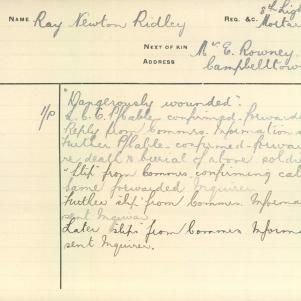 NAME Ray Newton Ridley REG. &C. 8th Light
Mortar
NEXT OF KIN Mr. E. Rowney
ADDRESS Campbelltow
1/P "Dangerously wounded".
confirmed. forwarde
Reply from Commrs. Information
Further P/Cable. confirmed. forwar
re death & burial of above soldie
"Slip" from Commrs. confirming cab
Same forwarded Inquirer
Further slip from Commrs. Informa
sent Inquirer
Later slip from Commrs Informa
sent Inquirer.